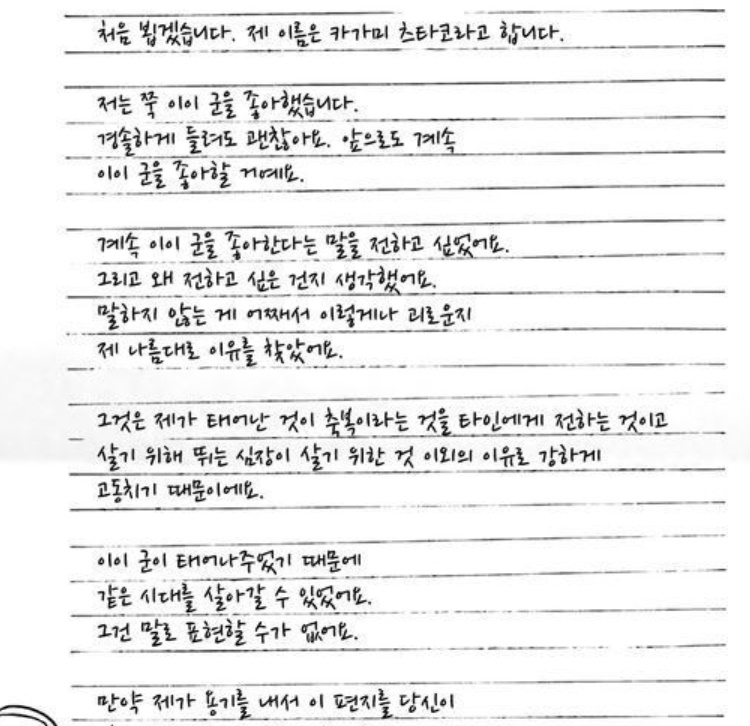 처음 뵙겠습니다. 제 이름은 카가미 츠타코라고 합니다.
저는 쭉 이이 군을 좋아했습니다.
경솔하게 들려도 괜찮아요. 앞으로도 계속
이이 군을 좋아할 거예요.
계속 이이 군을 좋아한다는 말을 전하고 싶었어요.
그리고 왜 전하고 싶은 건지 생각했어요.
말하지 않는 게 어째서 이렇게나 괴로운지
제 나름대로 이유를 찾았어요.
그것은 제가 태어난 것이 축복이라는 것을 타인에게 전하는 것이고
살기 위해 뛰는 심장이 살기 위한 것 이외의 이유로 강하게
고동치기 때문이에요.
이이 군이 태어나주었기 때문에
같은 시대를 살아갈 수 있었어요.
그건 말로 표현할 수가 없어요.
만약 제가 용기를 내서 이 편지를 당신이